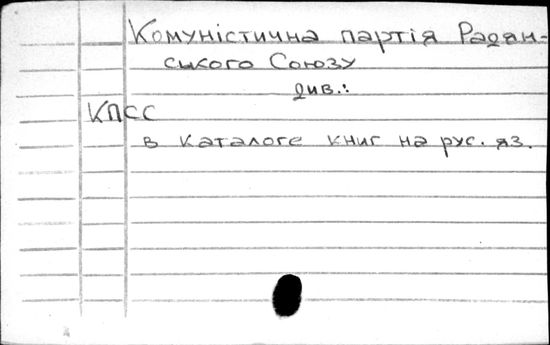 Комуністична партія Радян-
ського Союзу
див.:
КПСС
в каталоге книг на рус. яз.